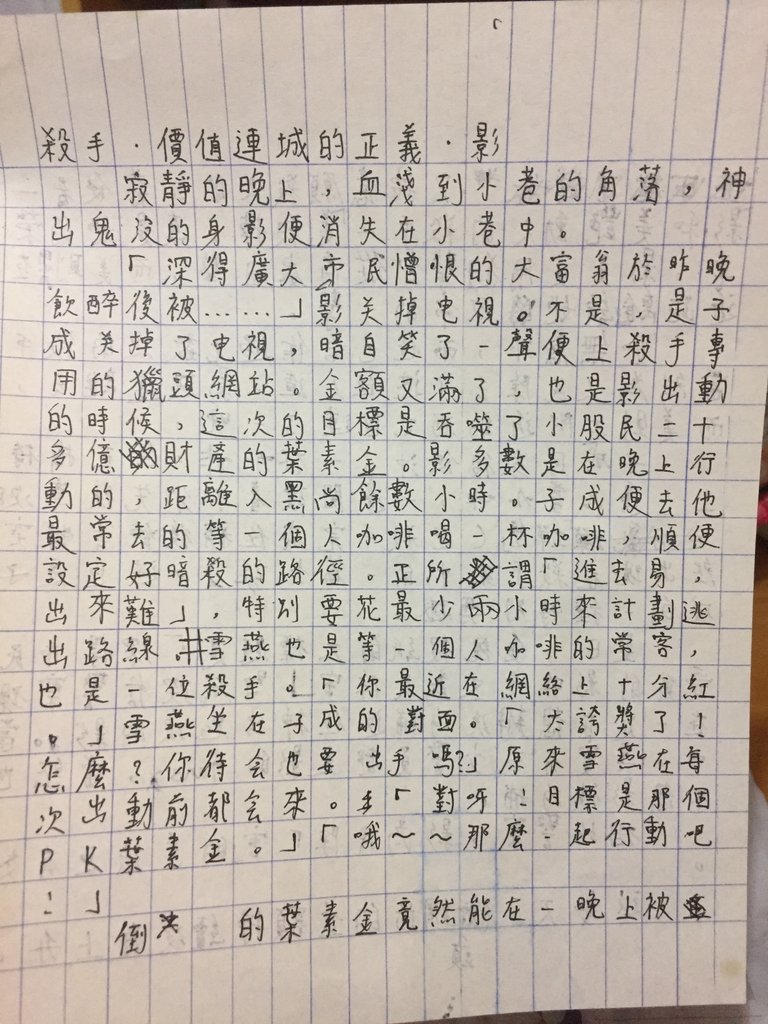 殺手．價值連城的正義．影
寂靜的晚上，血淺到小巷的角落，神
出鬼沒的身影便消失在小巷中。
「深得廣大市民憎恨的大富翁於昨晚
飲醉後被……」影关掉电視。不是，是子
成关掉了电視，暗自笑了一聲便上殺手專
用的獵頭網站。金額又滿了，也是影出動
的時候，這次的目標是吞噬了小股民二十
多億財產的葉素金。影多數是在晚上行
動的，距離入黑尚餘數小時。子成便去他
最常去的等一個人咖啡喝一杯咖啡，順便
設定好暗殺的路徑。正所謂「進去易，
出來難」，特別要花最少兩小時來計劃逃
出路線。雪燕也是等一個人咖啡的常客，
也是一位殺手。「你最近在網絡上十分紅
。」雪燕坐在子成的對面。「太誇獎了！
怎麼？你待会也要出手嗎？」原來雪燕在每
次出動前都会來。「對呀！目標是那個
葉素金。」「哦～～那麼一起行動吧
PK
！」
倒 的葉素金竟然能在一晚上被